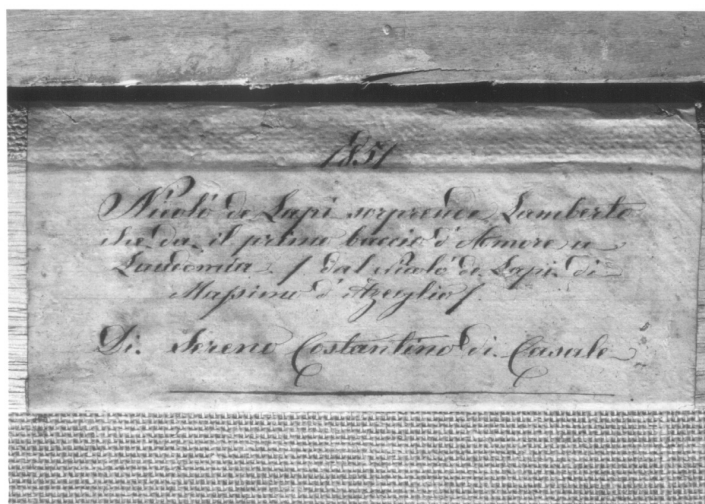 1851
Nicolò de Lapi sorprende Lamberto
che da il primo baccio d'Amore a
Laudomia. / dal Nicolò de Lapi di
Massimo d'Azeglio /.
Di. Sereno Costantino di Casale